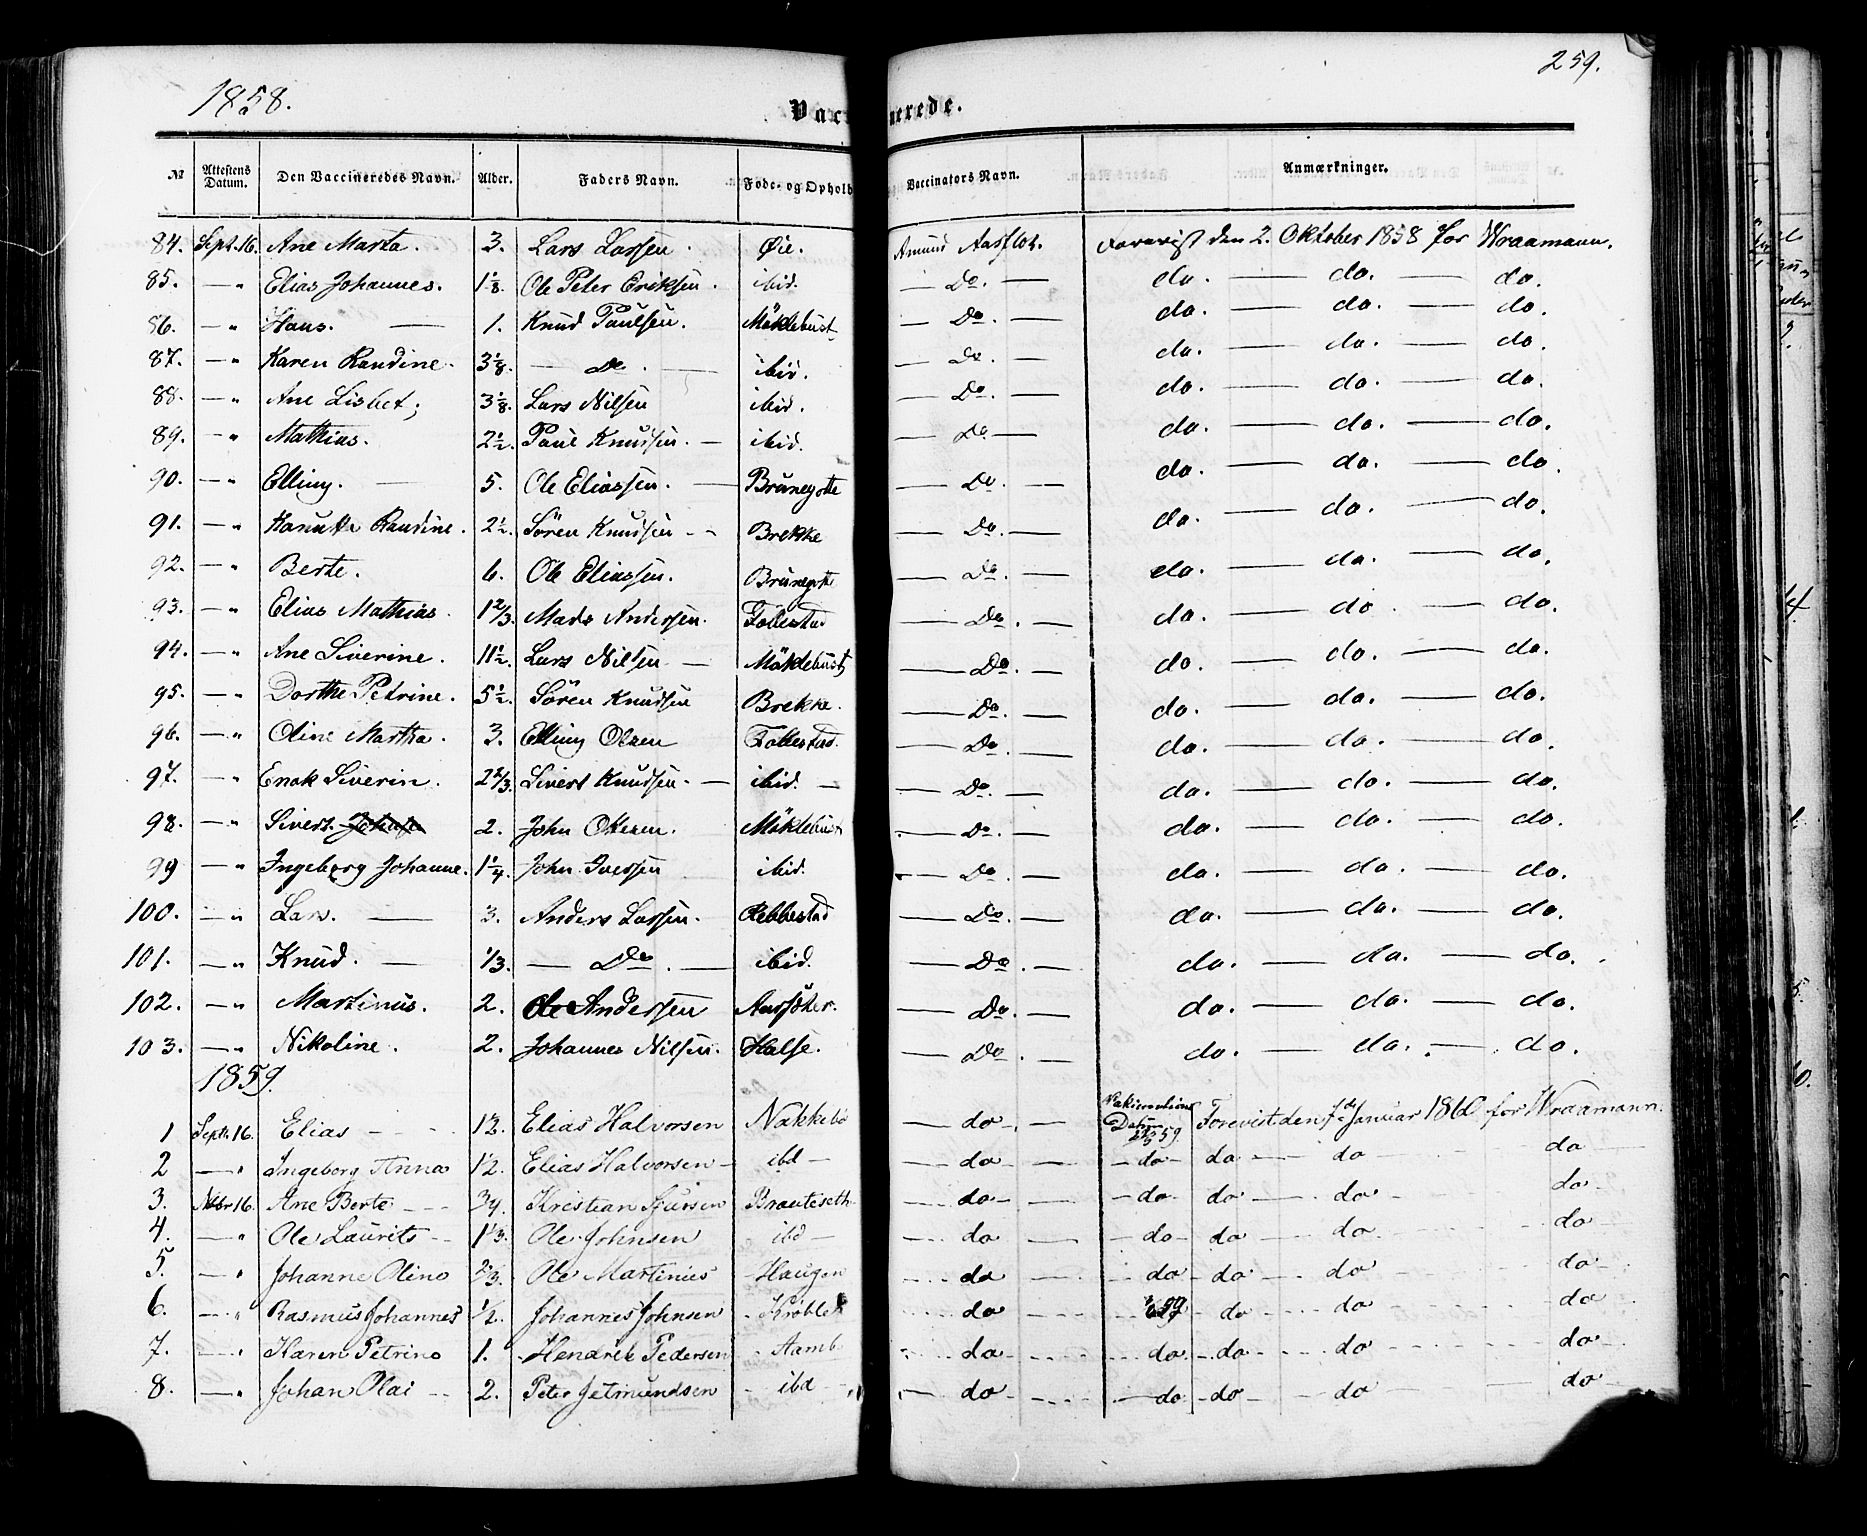 259.
1858.
Vac nerede.
№ Attestens Datum. Den Vaccineredes Navn. Alder. Faders Navn. Føde- og Ophold Vaccinators Navn. Anmærkninger.
84. Sept. 16. Ane Marta. 3. Lars Larssen. Øie. Amund Aarflot. Forevist den 2. Oktober 1858 for Wraamann.
85. — " Elias Johannes. 1 1/8. Ole Peter Eriksen. ibid. — Do. — do. — do. — do.
86. — " Hans. — 1. Knud Paulsen. Möklebust — Do. — do. — do. — do.
87. — " Karen Randine. 3 1/8. — Do. — ibid. — Do. — do. — do. — do.
88. — " Ane Lisbet; 3 1/8. Lars Nilsen ibid. — Do. — do. — do. — do.
89. — " Mathias. 2 1/2. Paul Knudsen. — ibid. — Do — do. — do. — do.
90. — " Elling. — 5. Ole Eliassen. — Brunegotte — Do. — do. — do. — do.
91. — " Randine. 2 1/2. Sören Knudsen - - Brekke — Do. — do. — do. — do.
92. — " Berte. 6. Ole Eliassen. Brunegotte — Do. — do. — do. — do.
93. — " Elias Mathias. 1 2/3. Mads Andersen. Follestad — Do. — do. — do — do.
94. — " Ane Siverine. 11 1/2. Lars Nilsen — Möklebust — Do — do. — do. — do.
95. — " Dorthe Petrine. 5 1/2. Sören Knudsen Brekke. — Do. — do. — do. — do.
96. — " Oline Martha. 3. Elling Olsen Follestad. — Do. — do. — do. — do.
97. — " Enok Siverin. 2 2/3. Sivert Knudsen. — ibid. — — Do. — do. — do. — do.
98. — " Sivert. 2. John Ottesen. Möklebust — Do. — do. — do. — do.
99 — " Ingeborg Johanne. 1 1/4. John Iversen ibid. — Do. — do. — do. — do.
100. — " Lars. — 3. Anders Larsen. Rebbestad — Do. — do. — do. — do.
101. — " Knud. — 1/3. — Do. — ibid. — Do. — do. — do. — do.
102. — " Martinus. 2. Ole Andersen Aarsöter. — Do. — do. — do. — do.
103. — " Nikoline. 2. Johannes Nilsen. Halse. — Do. — do. — do. — do.
1859.
1 Septr. 16. Elias - - - Elias Halvorsen Nakkebö — do - — Datum 59. Forevist den 7de Januar 1860 for Wraamann.
2 — " Ingeborg Anna 1/2. Elias Halvorsen - ibd — — do - — - do - do — do do
3. Novbr 16. Ane Berte - - - 3/4. Kristian Sjursen Brauteseth — do - — - do - do — do - do -
4. — " Ole Laurits - - 1 1/3. Ole Johnsen ibd — — do — - do - do — do do
5. — " Johanne Oline 2/3. Ole Martinius - Haugen do — - do - do — do do
6. — " Rasmus Johannes 1/2. Johannes Johnsen - do — 59 - do - - do do
7. — " Karen Petrine 1. Hendrik Pedersen - Aamb do - - - do. - do - - do do
8. — " Johan Olai - - 2. Peter Jetmundsen - ibd — do - - do - do - do do